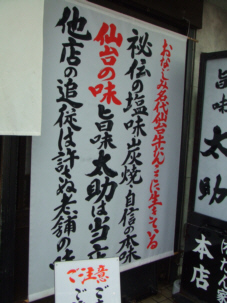 おなじみ名代仙台牛たんこに生きている
秘伝の塩味炭焼自信の本味
仙台の味 旨味太助は当店
他店の追従は許さぬ老舗の味
ご注意
旨味太助
本店